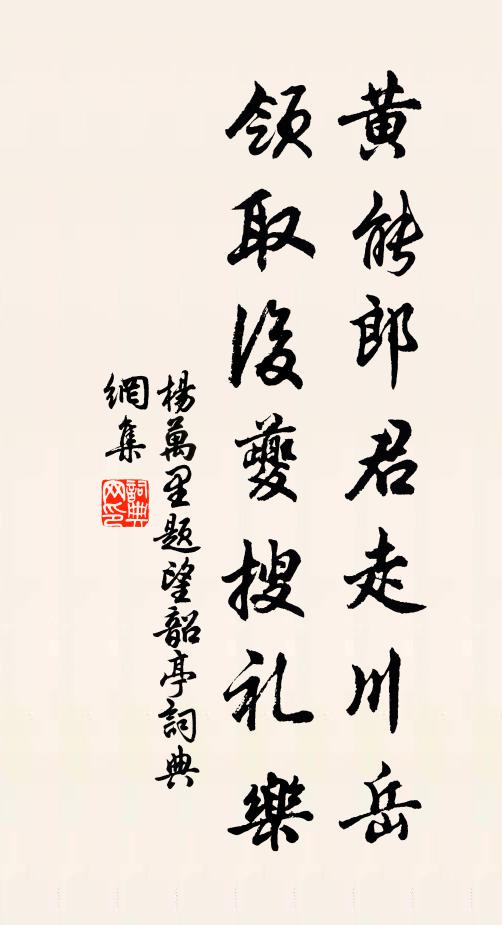 黄能郎君走川岳
領取後夔搜礼樂
楊萬里题望韶亭詞典
網集
詞典網印